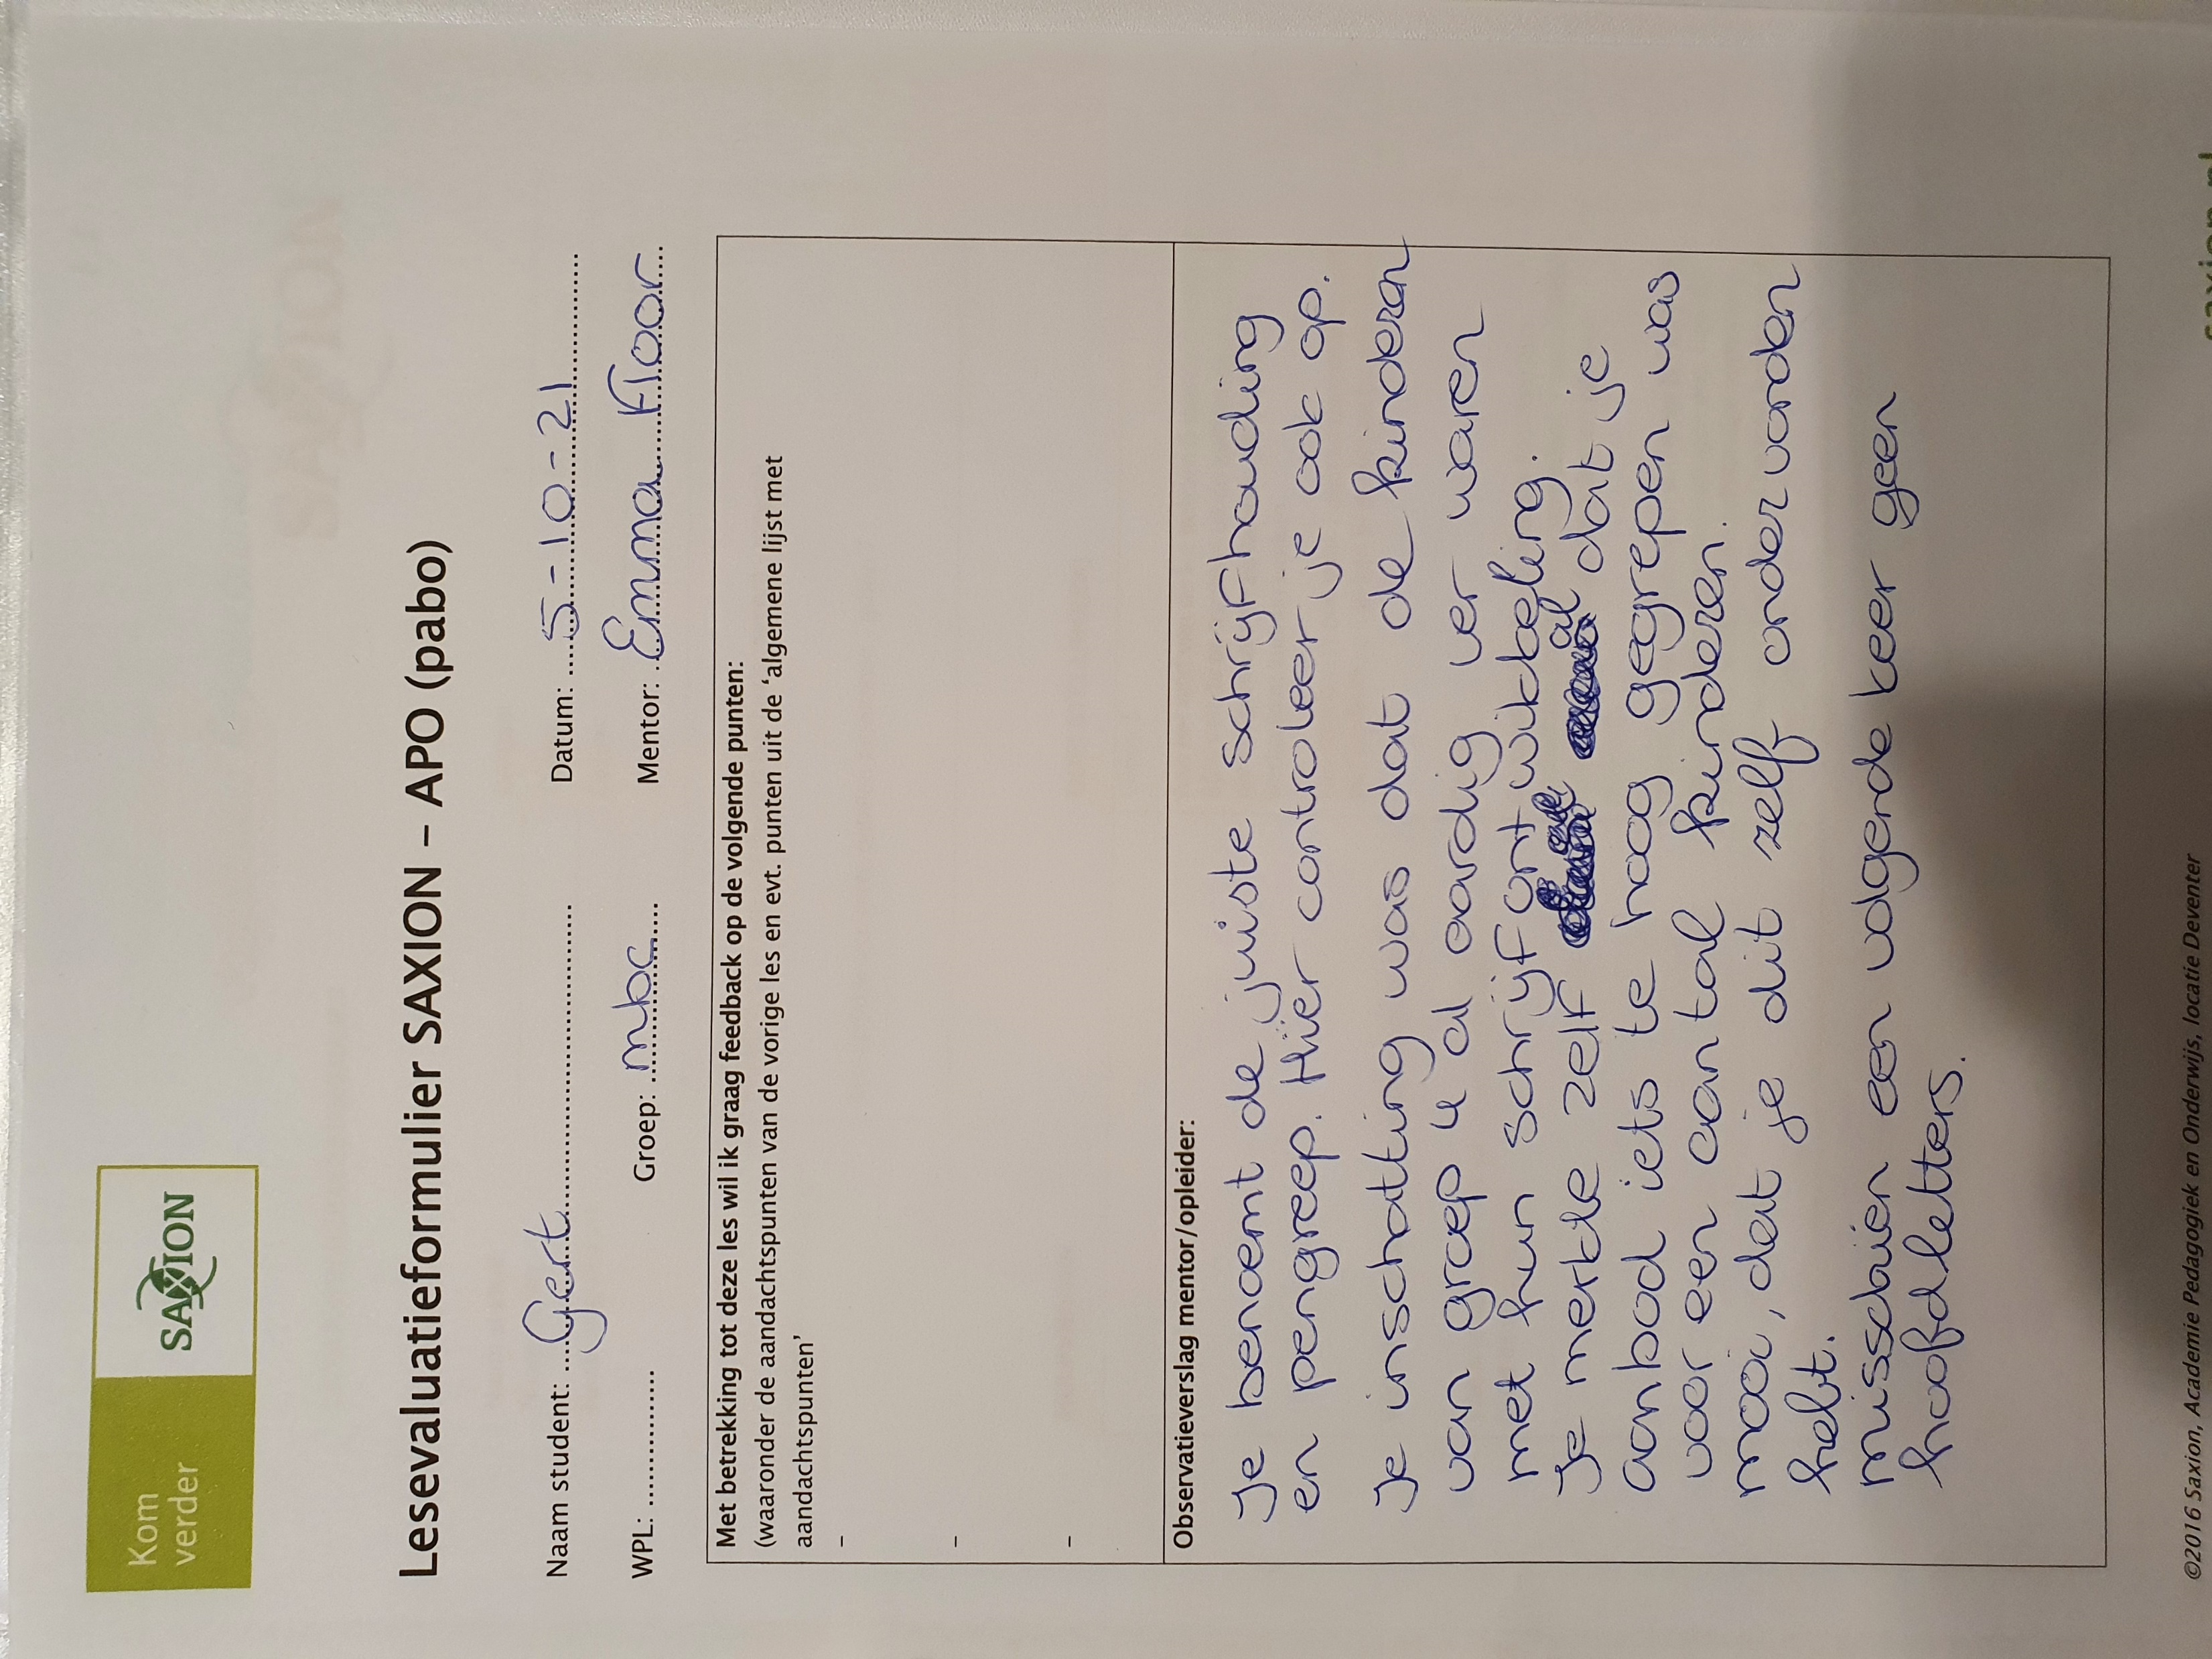 Kom
verder
SAXION
Lesevaluatieformulier SAXION – APO (pabo)
Naam student: ...Gert................. Datum: ....5-10-21............
WPL: ............... Groep: ..mbc.... Mentor: .Emma Floor...
Met betrekking tot deze les wil ik graag feedback op de volgende punten:
(waaronder de aandachtspunten van de vorige les en evt. punten uit de 'algemene lijst met
aandachtspunten'
-
-
-
Observatieverslag mentor/opleider:
Je benoemt de juiste schrijfhouding
en pengreep. Hier controleer je ook op.
Je inschatting was dat de kinderen
van groep 4 al aardig ver waren
met hun schrijfontwikkeling.
Je merkte zelf al dat je
aanbod iets te hoog gegrepen was
voor een aantal kinderen.
mooi, dat je dit zelf ondervonden
hebt.
misschien een volgende keer geen
hoofdletters.
©2016 Saxion, Academie Pedagogiek en Onderwijs, locatie Deventer
saxion.nl